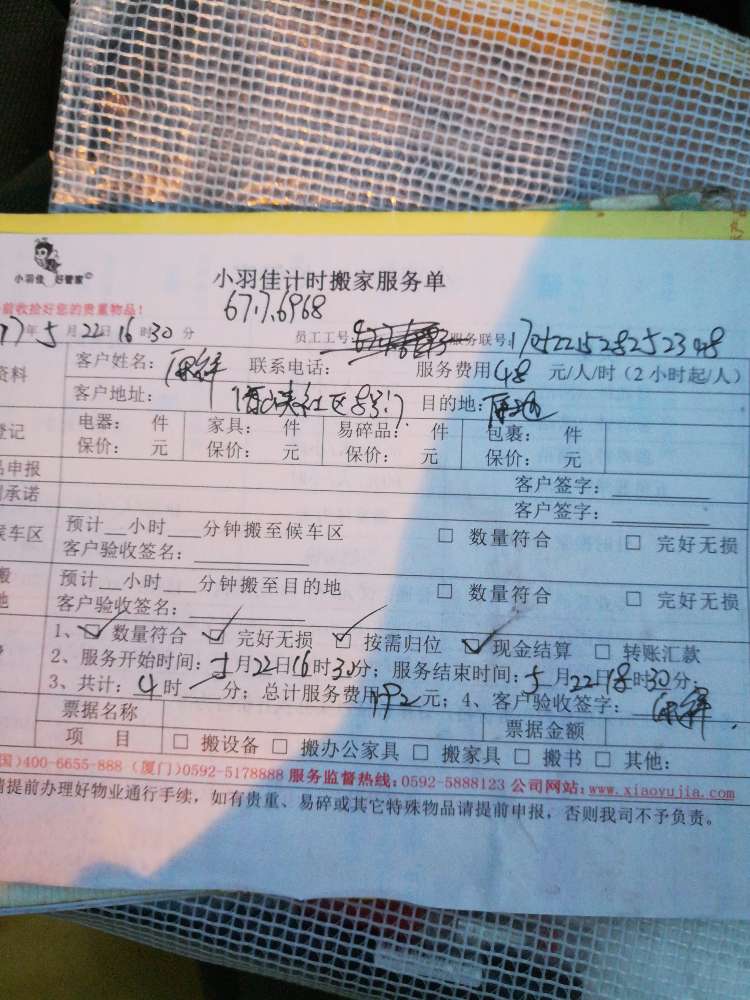 小羽佳 好管家
小羽佳计时搬家服务单
前收捡好您的贵重物品！
67.7.6968
17年5月22日16时30分 员工工号: 服务联号:
资料 客户姓名: 联系电话: 服务费用48元/人/时（2小时起/人）
客户地址: 社区 目的地:
登记 电器: 件 家具: 件 易碎品: 件 包裹: 件
保价: 元 保价: 元 保价: 元 保价: 元
品申报 客户签字:
承诺 客户签字:
候车区 预计__小时___分钟搬至候车区 □ 数量符合 □ 完好无损
客户验收签名:
搬 预计__小时___分钟搬至目的地 □ 数量符合 □ 完好无损
地 客户验收签名:
1、☑ 数量符合 ☑ 完好无损 ☑ 按需归位 ☑ 现金结算 □ 转账汇款
2、服务开始时间: 5月22日16时30分; 服务结束时间: 5月22日18时30分;
3、共计: 4时 分; 总计服务费用192元; 4、客户验收签字:
票据名称 票据金额
项 目 □ 搬设备 □ 搬办公家具 □ 搬家具 □ 搬书 □ 其他:
国)400-6655-888（厦门)0592-5178888 服务监督热线:0592-5888123 公司网站:www.xiaoyujia.com
请提前办理好物业通行手续，如有贵重、易碎或其它特殊物品请提前申报，否则我司不予负责。